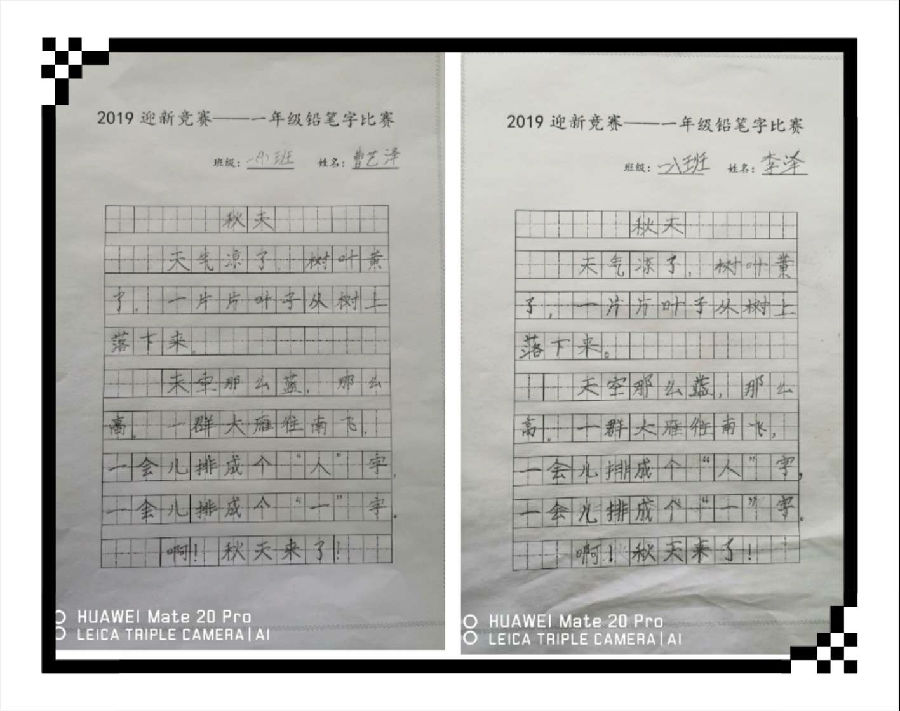 2019 迎新竞赛——一年级铅笔字比赛
班级: 一八班 姓名: 曹艺泽
秋天
天气凉了,树叶黄
了,一片片叶子从树上
落下来。
天空那么蓝,那么
高。一群大雁往南飞,
一会儿排成个“人”字,
一会儿排成个“一”字。
啊!秋天来了!
HUAWEI Mate 20 Pro
LEICA TRIPLE CAMERA | AI
2019 迎新竞赛——一年级铅笔字比赛
班级: 一八班 姓名: 李泽
秋天
天气凉了,树叶黄
了,一片片叶子从树上
落下来。
天空那么蓝,那么
高。一群大雁往南飞,
一会儿排成个“人”字,
一会儿排成个“一”字。
啊!秋天来了!
HUAWEI Mate 20 Pro
LEICA TRIPLE CAMERA | AI